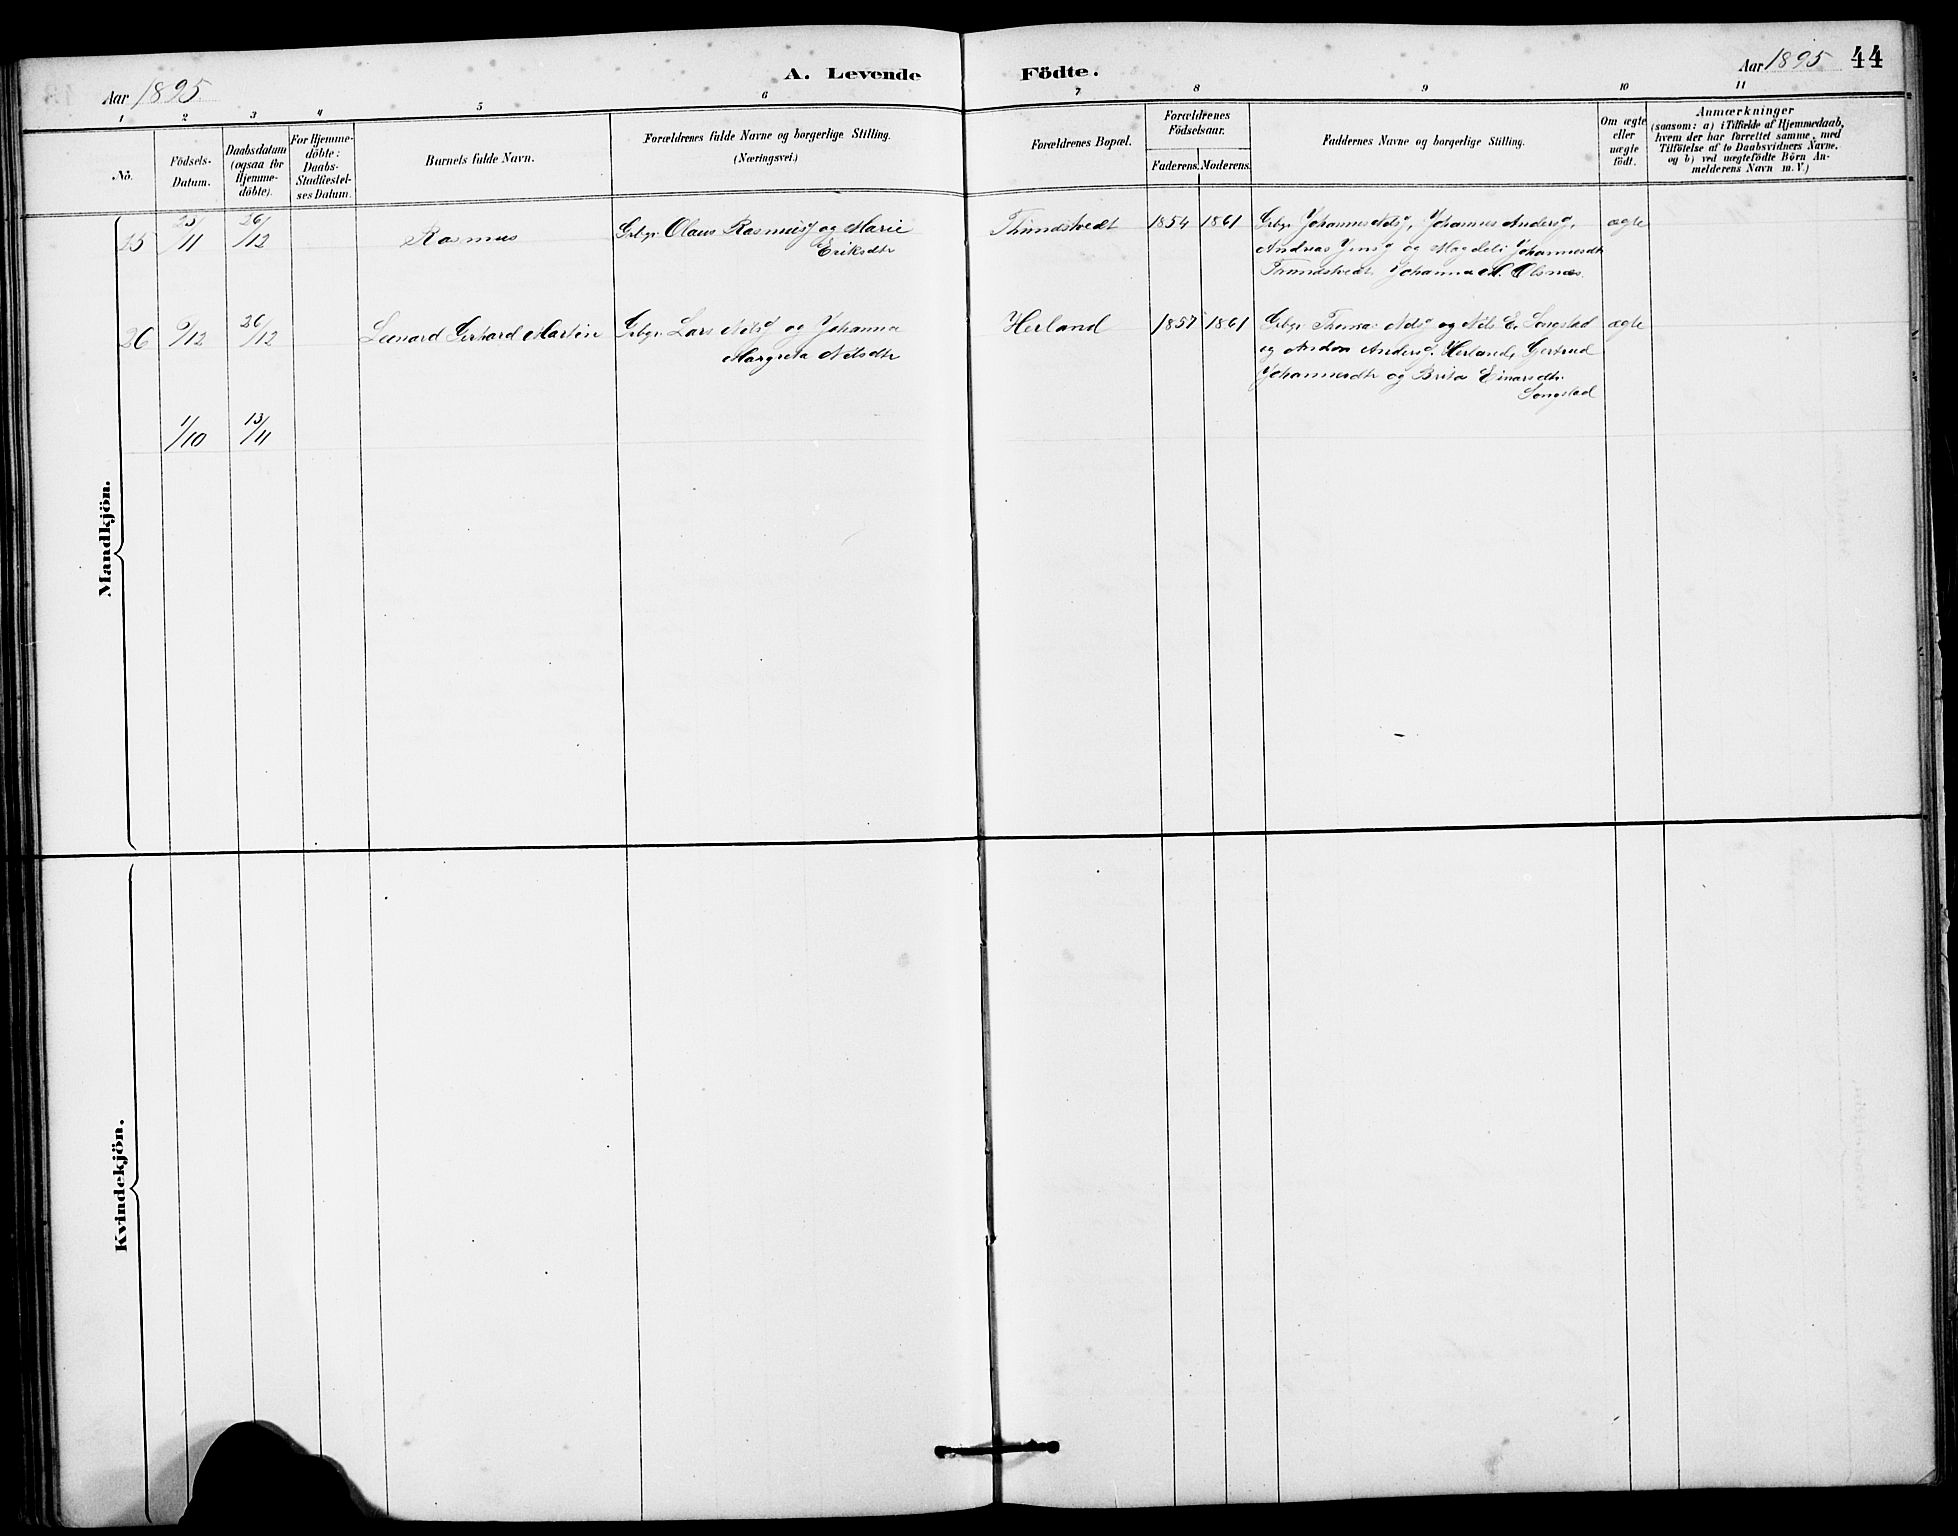 Aar 1895.
A. Levende Födte.
Aar 1895 44
1 2 3 4 5 6 7 8 9 10 11
Nö.
Födsels-Datum.
Daabsdatum (ogsaa for Hjemme-döbte).
For Hjemme-döbte: Daabs-Stadfæstel-ses Datum.
Barnets fulde Navn.
Forældrenes fulde Navne og borgerlige Stilling.
(Næringsvei.)
Forældrenes Bopæl.
Forældrenes Födselsaar.
Faderens. Moderens.
Faddernes Navne og borgerlige Stilling.
Om ægte eller uægte födt.
Anmærkninger
(saasom: a) i Tilfælde af Hjemmedaab,
hvem der har forrettet samme, med
Tilföielse af to Daabsvidners Navne,
og b) ved uægtefödte Börn An-
melderens Navn m. V.)
Mandkjön.
25 25/11 26/12 Rasmus Grbgr. Olaus Rasmussg og Marie Thundstvedt 1854 1861 Grbgr. Johannes Nilsg, Johannes Andersg, ægte
Eriksdtr Andreas Jensg og Magdeli Johannesdtr
Thundstvedt, Johanna M. Olsnæs.
26 9/12 26/12 Leonard Gerhard Martin Grbgr. Lars Nilsg og Johanna Herland 1857 1861 Grbgr. Thomas Nilsg og Nils E. Songstad ægte
Margreta Nilsdtr og Andos Andersg. Herland, Gertrud
Johannesdtr og Brita Einarsdtr.
Songstad
1/10 13/11
Kvindekjön.